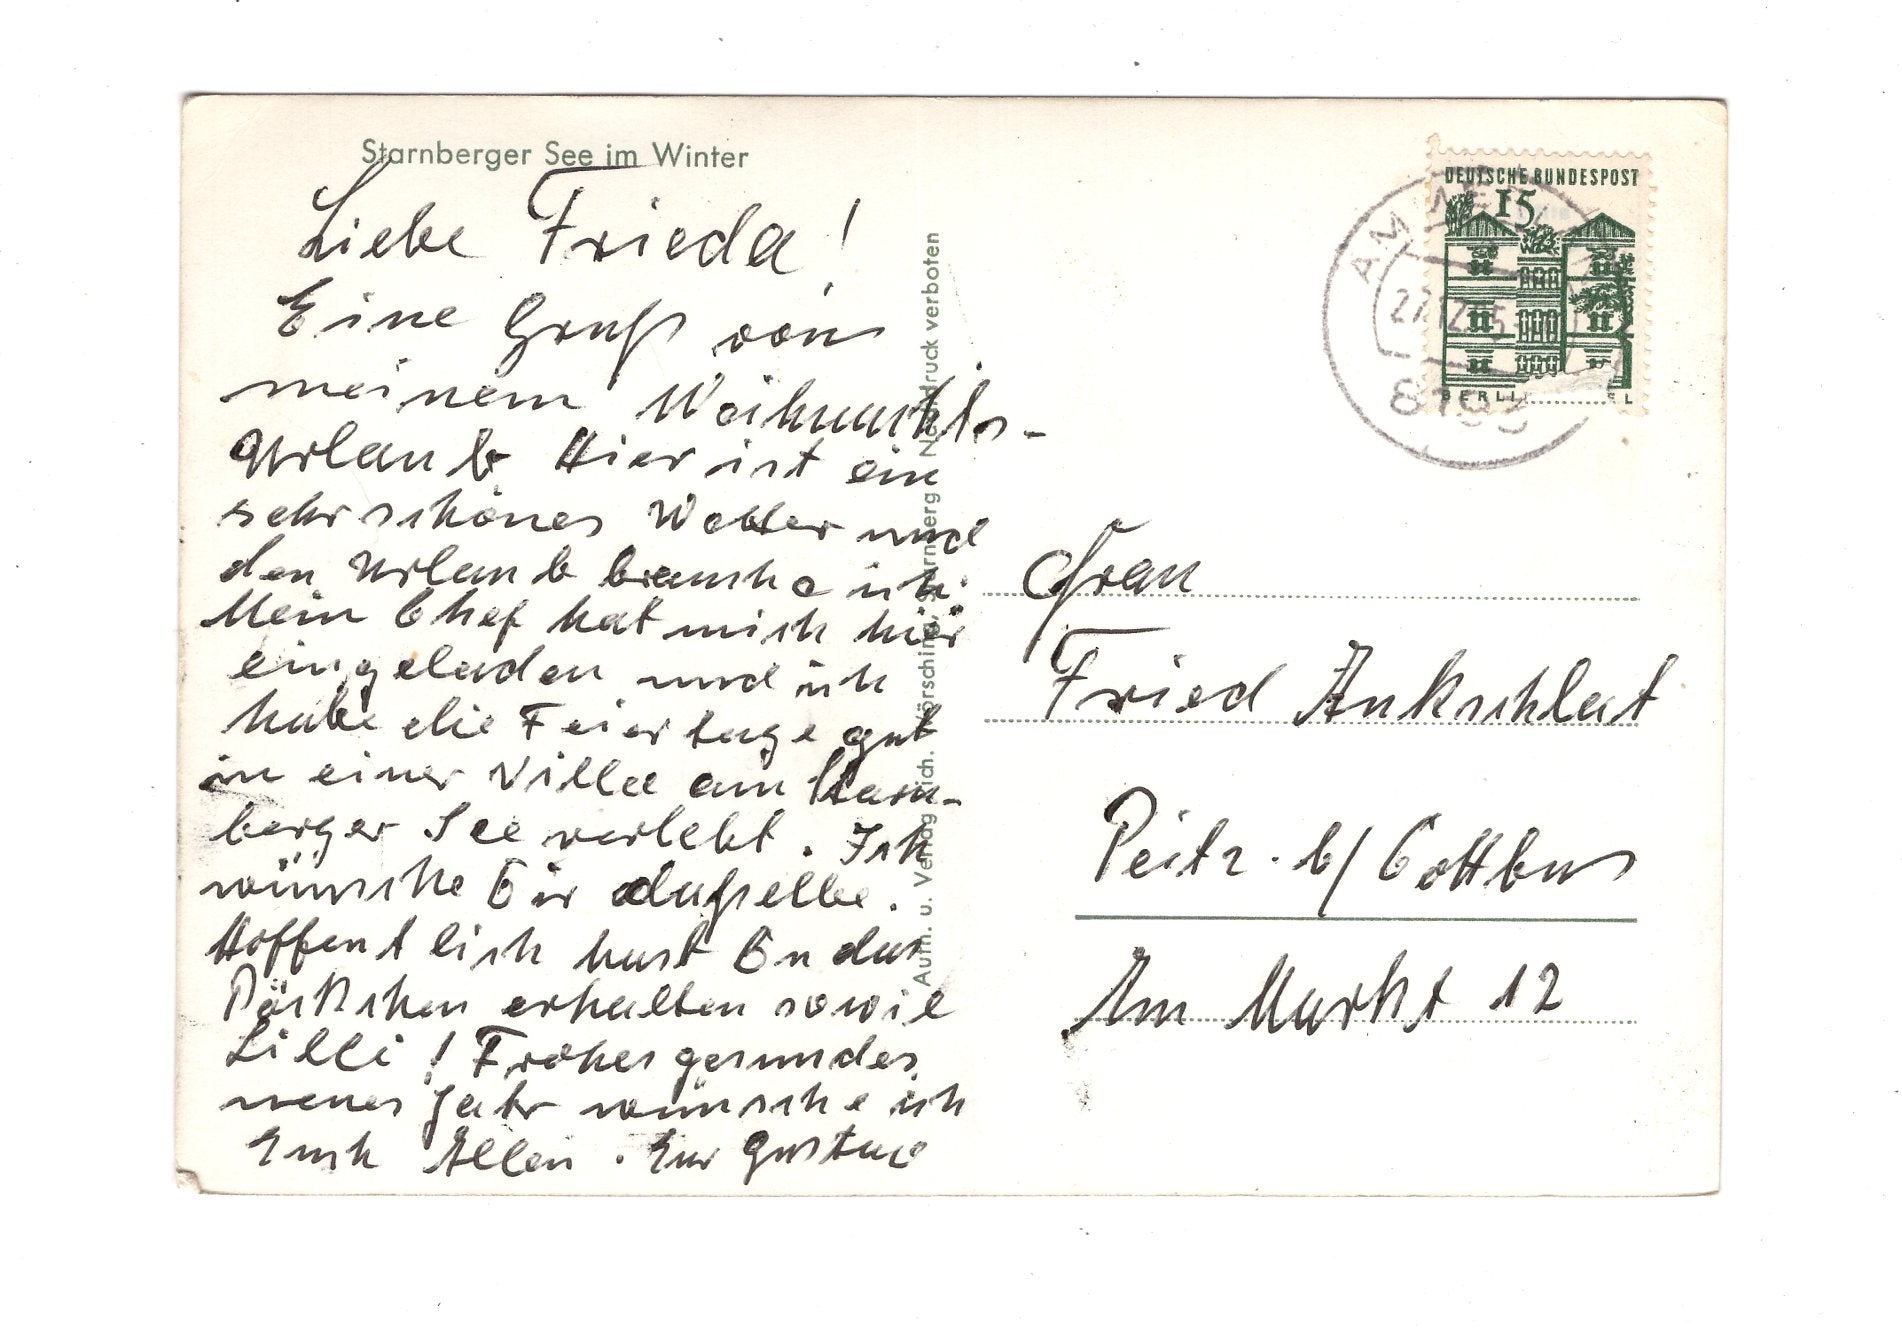 Starnberger See im Winter
Liebe Frieda!
Eine Gruß von
meinem Weihnachts-
Urlaub Hier ist ein
sehr schönes Wetter und
den Urlaub brauche ich.
Mein Chef hat mich hier
eingeladen und ich
habe die Feiertage gut
in einer Villa am Starn-
berger See verlebt. Ich
wünsche Dir daßelbe.
Hoffentlich hast Du das
Päckchen erhalten sowie
Lilli! Frohes gesundes
neues Jahr wünsche ich
Euch Allen. Eur Gustav
Aufn. u. Verlag Rich. Hörsching, Starnberg Nachdruck verboten
DEUTSCHE BUNDESPOST
15
BERLIN
AM
27.12.
Frau
Fried Ankschlat
Peitz. b/ Cottbus
Am Markt 12